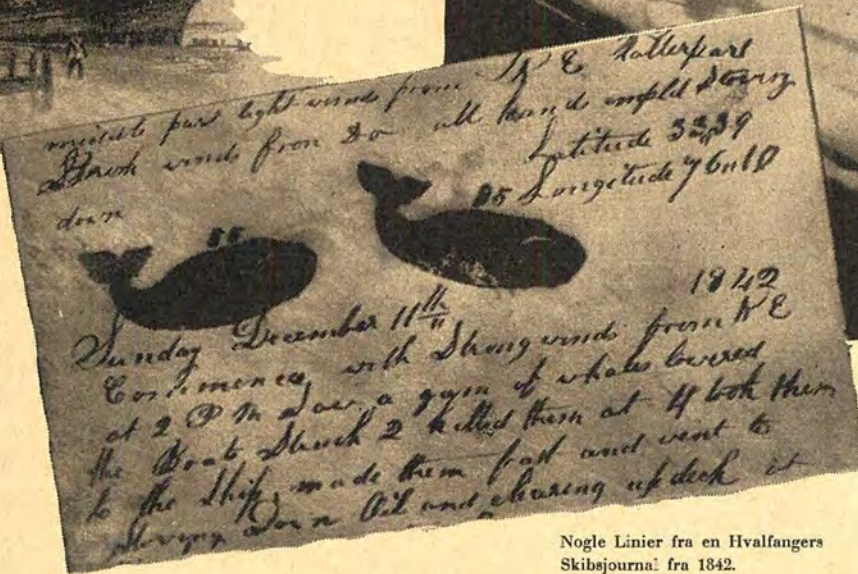 middle part light winds from N E Latter part
Fresh winds from Do all hands empld Stowing
down Latitude 33,39
85 Longitude 76,10
85
1842
Sunday December 11th
Commences with Strong winds from N E
at 2 P M Saw a gam of whales lowered
the Boats Struck 2 killed them at 4 took them
to the Ship made them fast and went to
Stowing Down Oil and clearing up deck
Nogle Linier fra en Hvalfangers
Skibsjournal fra 1842.